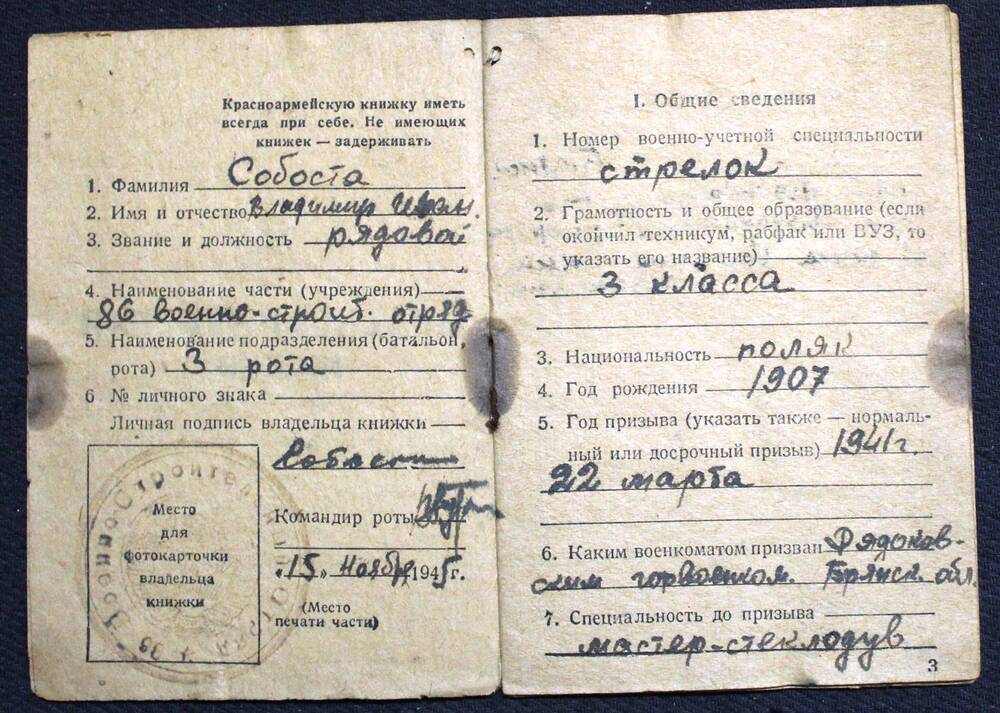 Красноармейскую книжку иметь
всегда при себе. Не имеющих
книжек — задерживать
1. Фамилия Собоста
2. Имя и отчество Владимир Иван.
3. Звание и должность рядовой
4. Наименование части (учреждения)
86 военно-строит. отряд
5. Наименование подразделения (батальон,
рота) 3 рота
6 № личного знака
Личная подпись владельца книжки
Командир роты
Место
для
фотокарточки
владельца
книжки
„15„ Ноября 1945г.
(Место
печати части)
I. Общие сведения
1. Номер военно-учетной специальности
стрелок
2. Грамотность и общее образование (если
окончил техникум, рабфак или ВУЗ, то
указать его название)
3 класса
3. Национальность поляк
4. Год рождения 1907
5. Год призыва (указать также — нормаль-
ный или досрочный призыв) 1941г.
22 марта
6. Каким военкоматом призван
ским горвоенком. Брянск. обл.
7. Специальность до призыва
мастер-стеклодув
3